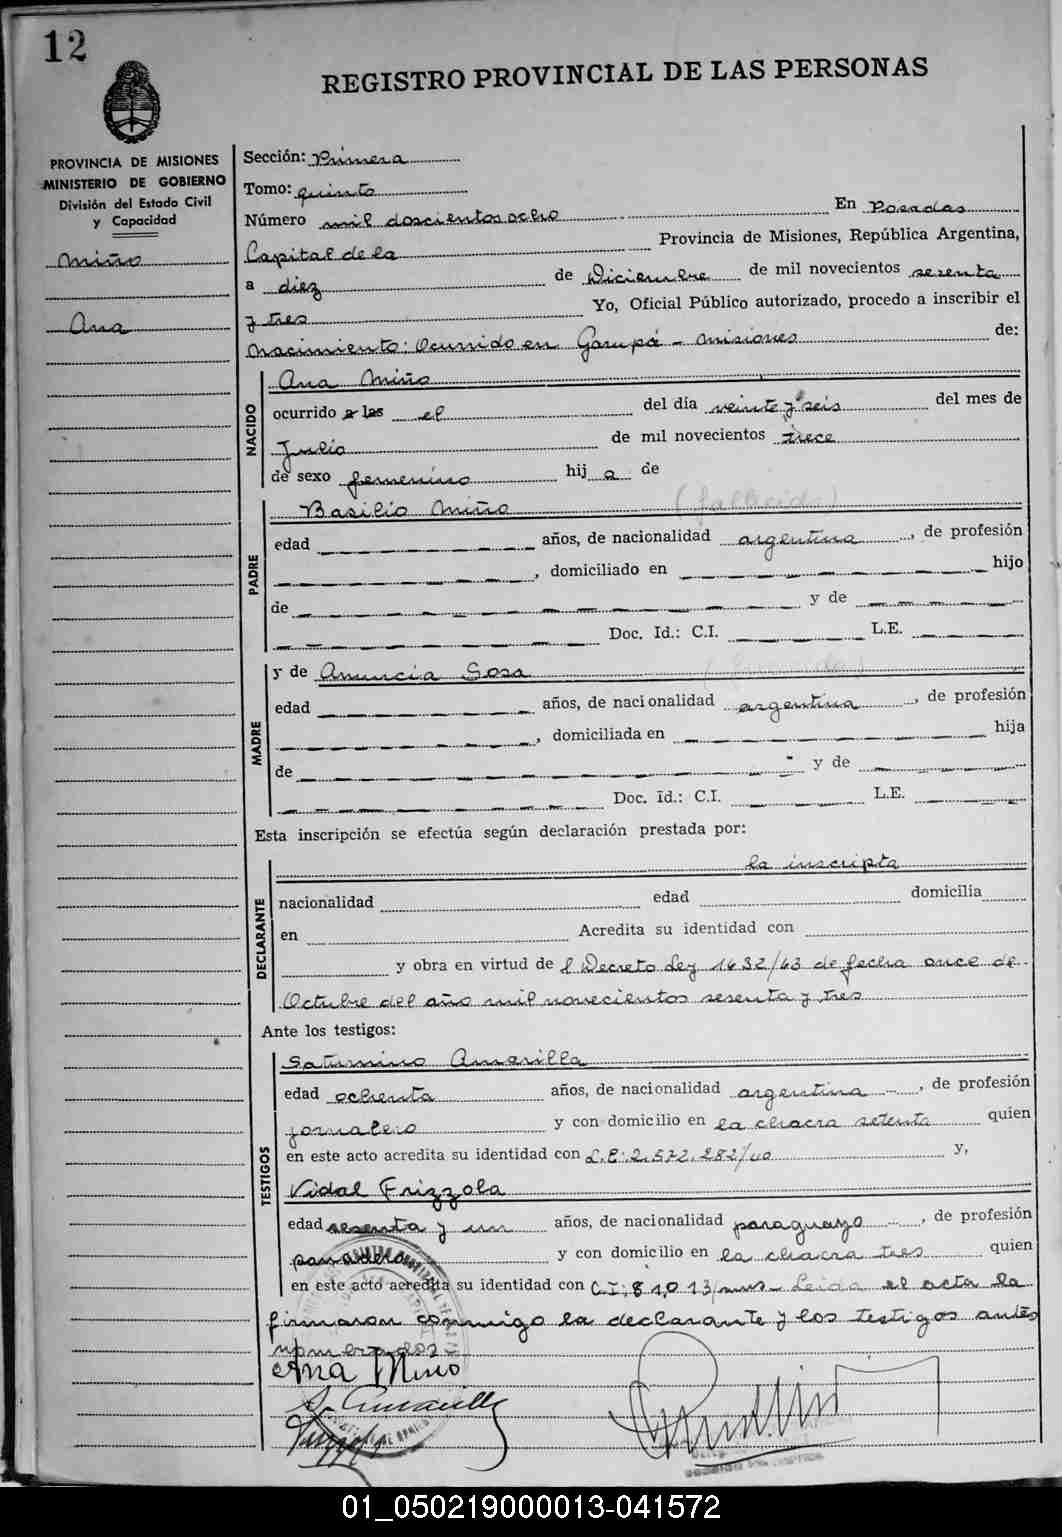 12
REGISTRO PROVINCIAL DE LAS PERSONAS
PROVINCIA DE MISIONES
MINISTERIO DE GOBIERNO
División del Estado Civil
y Capacidad
Miño
Ana
Sección: Primera
Tomo: quinto
Número mil doscientos ocho En Posadas
Capital de la Provincia de Misiones, República Argentina,
a diez de Diciembre de mil novecientos sesenta
y tres Yo, Oficial Público autorizado, procedo a inscribir el
nacimiento: Ocurrido en Garupá - Misiones de:
NACIDO
Ana Miño
ocurrido a las el del día veinte y seis del mes de
Julio de mil novecientos trece
de sexo femenino hij a de
PADRE
Basilio Miño (fallecido)
edad años, de nacionalidad argentina, de profesión
, domiciliado en hijo
de y de
Doc. Id.: C.I. L.E.
MADRE
y de Anuncia Sosa
edad años, de nacionalidad argentina, de profesión
, domiciliada en hija
de y de
Doc. Id.: C.I. L.E.
Esta inscripción se efectúa según declaración prestada por:
DECLARANTE
la inscripta
nacionalidad edad domicilia
en Acredita su identidad con
y obra en virtud de l Decreto Ley 1432/63 de fecha once de
Octubre del año mil novecientos sesenta y tres
Ante los testigos:
TESTIGOS
Saturnino Amarilla
edad ochenta años, de nacionalidad argentina, de profesión
jornalero y con domicilio en la chacra setenta quien
en este acto acredita su identidad con L.E: 2.572.282/ y,
Vidal Frizzola
edad sesenta y un años, de nacionalidad paraguayo, de profesión
panadero y con domicilio en la chacra tres quien
en este acto acredita su identidad con C.I: 81.013/mns- Leida el acta la
firmaron conmigo la declarante y los testigos antes
nombrados
Ana Mino
S. Amarilla
01_050219000013-041572